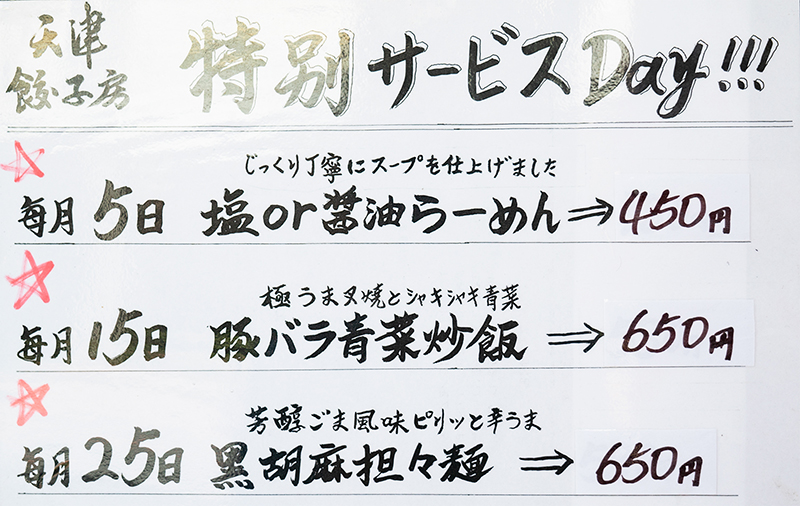 天津
餃子房
特別サービスDay!!!
じっくり丁寧にスープを仕上げました
毎月5日 塩or醤油らーめん⇒450円
極うま叉焼とシャキシャキ青菜
毎月15日 豚バラ青菜炒飯⇒650円
芳醇ごま風味ピリッと辛うま
毎月25日 黒胡麻担々麺⇒650円